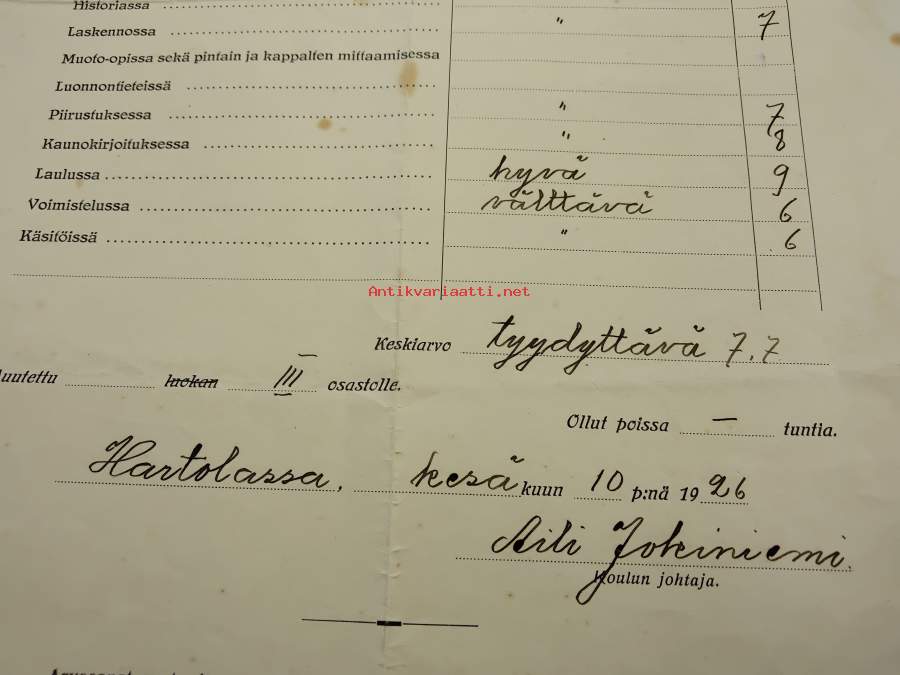 Historiassa
Laskennossa " 7
Muoto-opissa sekä pintain ja kappalten mittaamisessa
Luonnontieteissä
Piirustuksessa " 7
Kaunokirjoituksessa " 8
Laulussa hyvä 9
Voimistelussa välttävä 6
Käsitöissä " 6
Antikvariaatti.net
Keskiarvo tyydyttävä 7.7
luokan III osastolle.
Ollut poissa — tuntia.
Hartolassa, kesäkuun 10 p:nä 1926
Aili Jokiniemi.
Koulun johtaja.